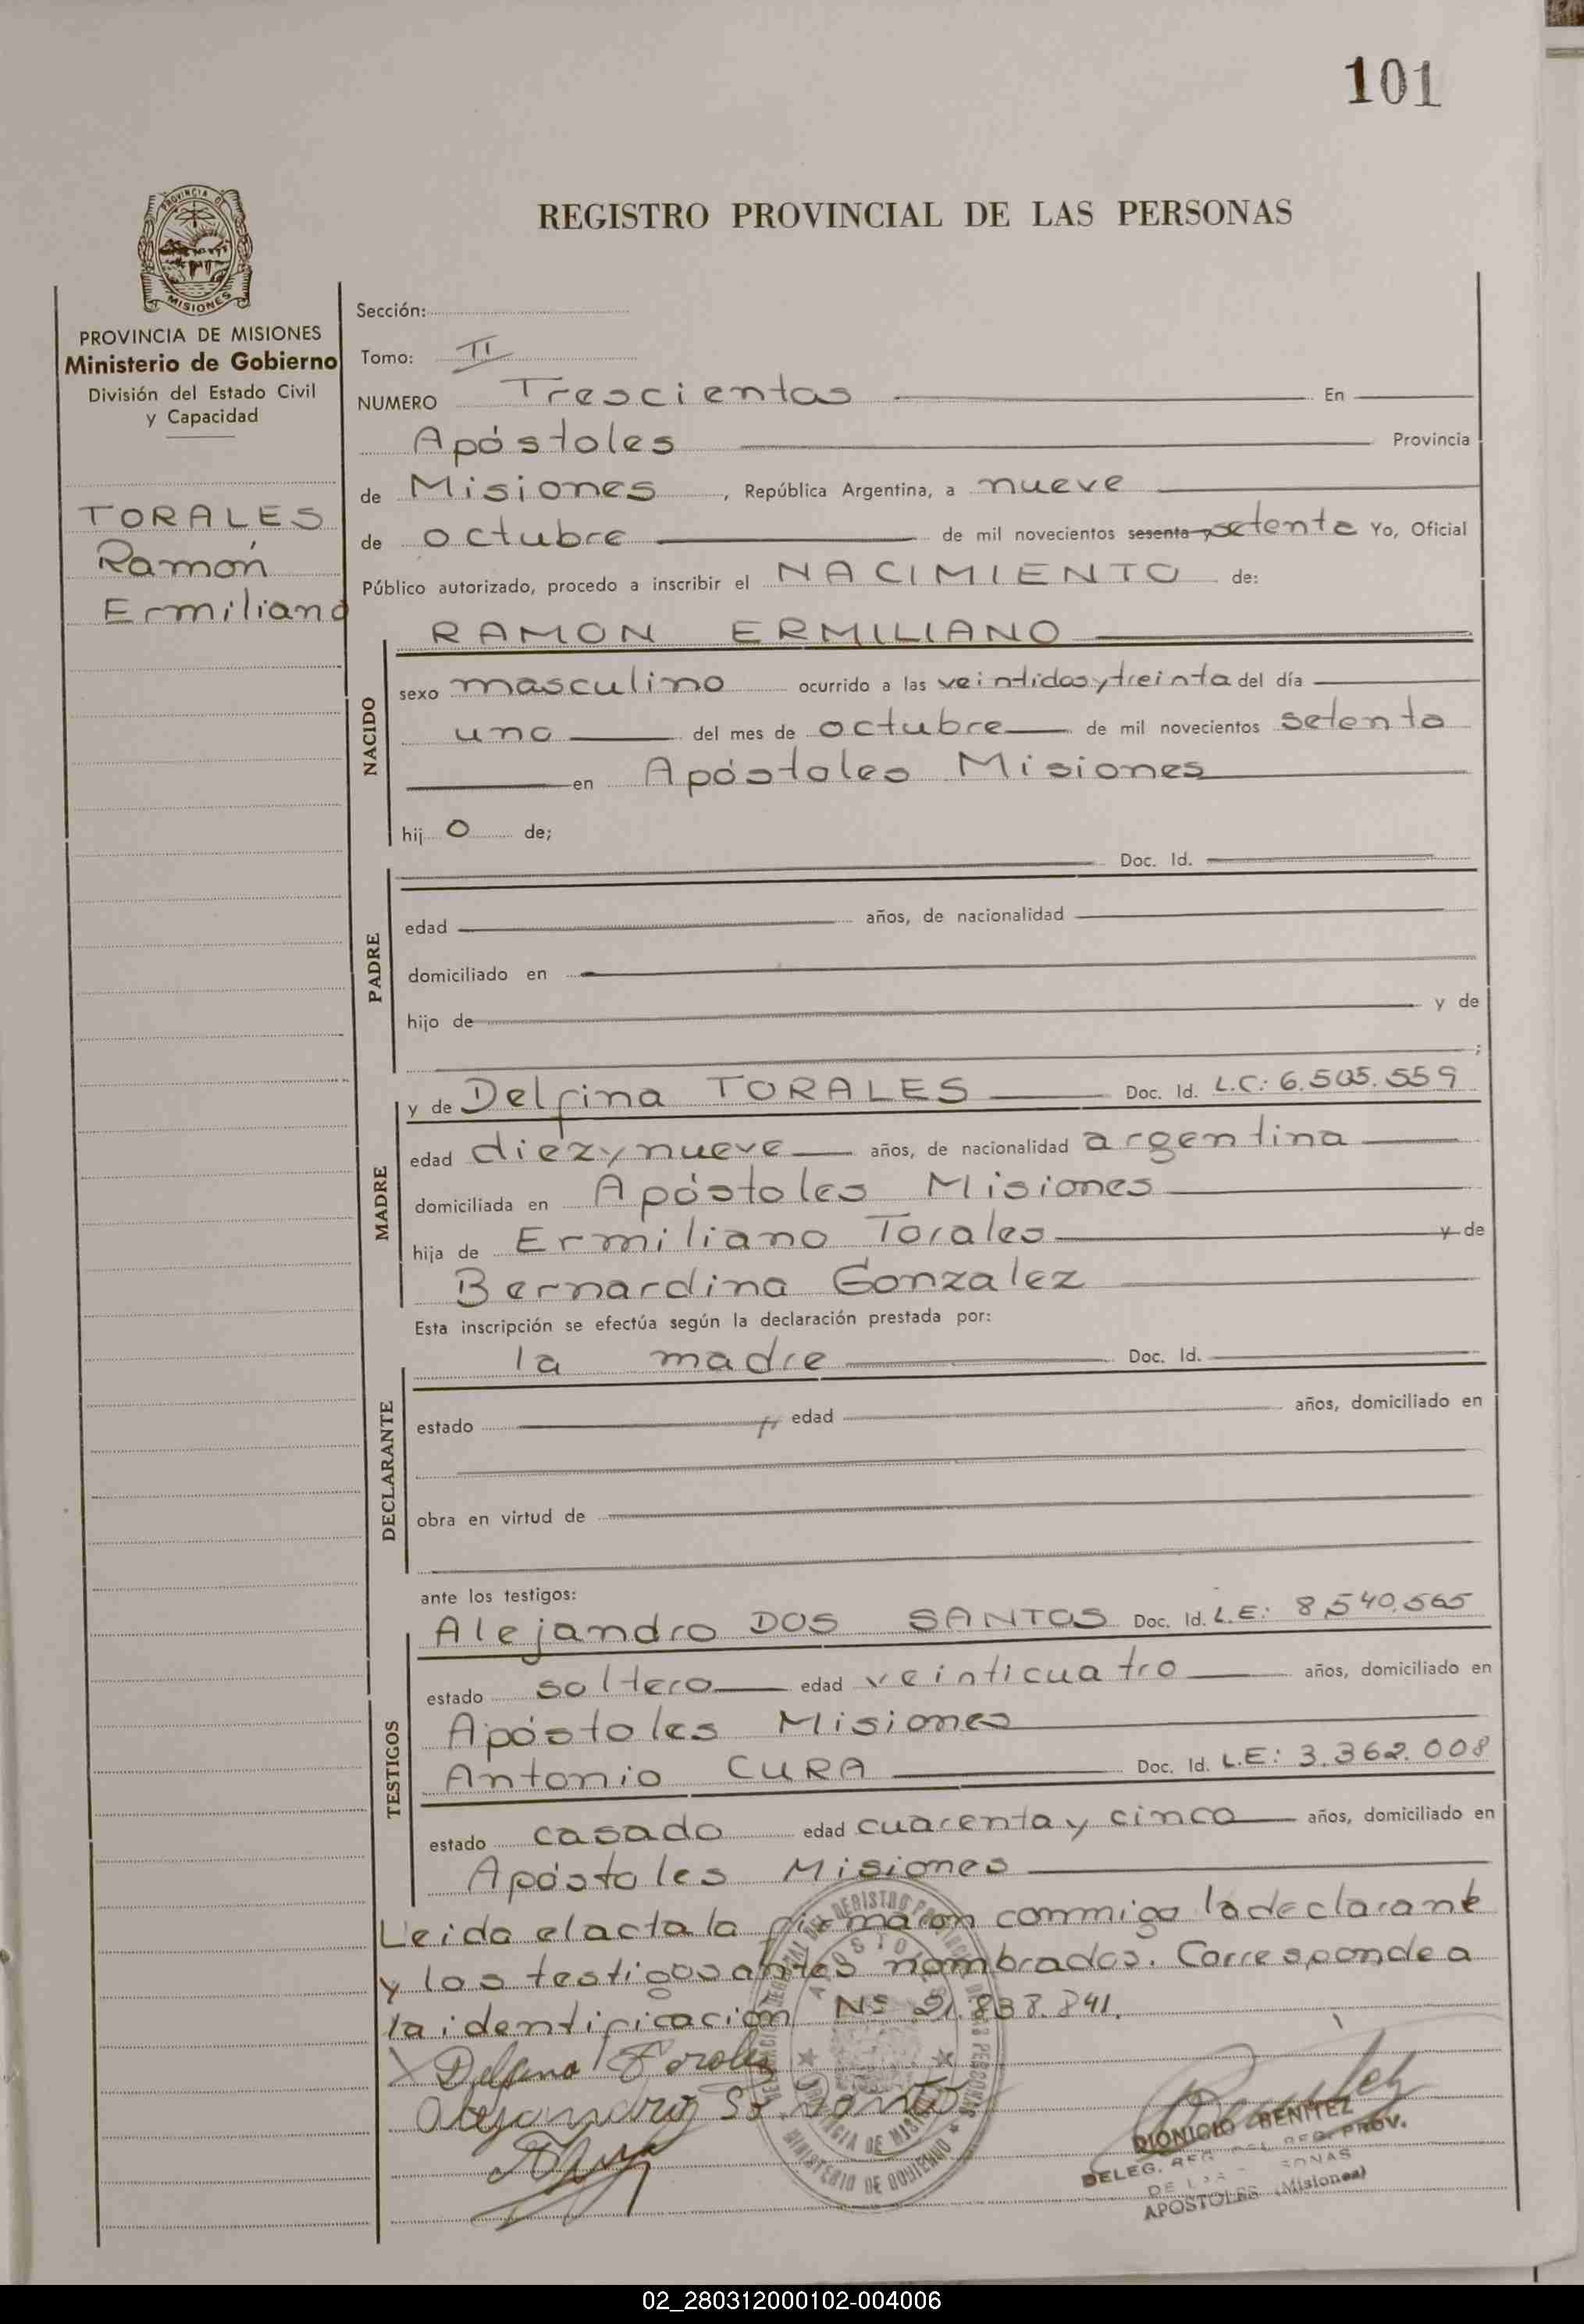 101
PROVINCIA DE
MISIONES
REGISTRO PROVINCIAL DE LAS PERSONAS
PROVINCIA DE MISIONES
Ministerio de Gobierno
División del Estado Civil
y Capacidad
TORALES
Ramón
Ermiliano
Sección:
Tomo: II
NUMERO Trescientos En
Apóstoles Provincia
de Misiones, República Argentina, a nueve
de octubre de mil novecientos sesenta y setenta Yo, Oficial
Público autorizado, procedo a inscribir el NACIMIENTO de:
NACIDO
RAMON ERMILIANO
sexo masculino ocurrido a las veintidos y treinta del día
uno del mes de octubre de mil novecientos setenta
en Apóstoles Misiones
hij o de;
PADRE
Doc. Id.
edad años, de nacionalidad
domiciliado en
hijo de y de
;
MADRE
y de Delfina TORALES Doc. Id. L.C: 6.505.559
edad diez y nueve años, de nacionalidad argentina
domiciliada en Apóstoles Misiones
hija de Ermiliano Torales y de
Bernardina Gonzalez
Esta inscripción se efectúa según la declaración prestada por:
DECLARANTE
la madre Doc. Id.
estado edad años, domiciliado en
obra en virtud de
ante los testigos:
TESTIGOS
Alejandro DOS SANTOS Doc. Id. L.E: 8.540.565
estado soltero edad veinticuatro años, domiciliado en
Apóstoles Misiones
Antonio CURA Doc. Id. L.E: 3.362.008
estado casado edad cuarenta y cinco años, domiciliado en
Apóstoles Misiones
Leida el acta la firmaron commigo la declarante
y los testigos antes nombrados. Corresponde a
la identificación Nº 21.838.841.
Delfina Torales
Alejandro
DIONICIO BENITEZ
DELEG. REG. DEL REG. PROV.
DE LAS PERSONAS
APOSTOLES (Misiones)
MINISTERIO DE GOBIERNO
PROVINCIA DE MISIONES
02_280312000102-004006